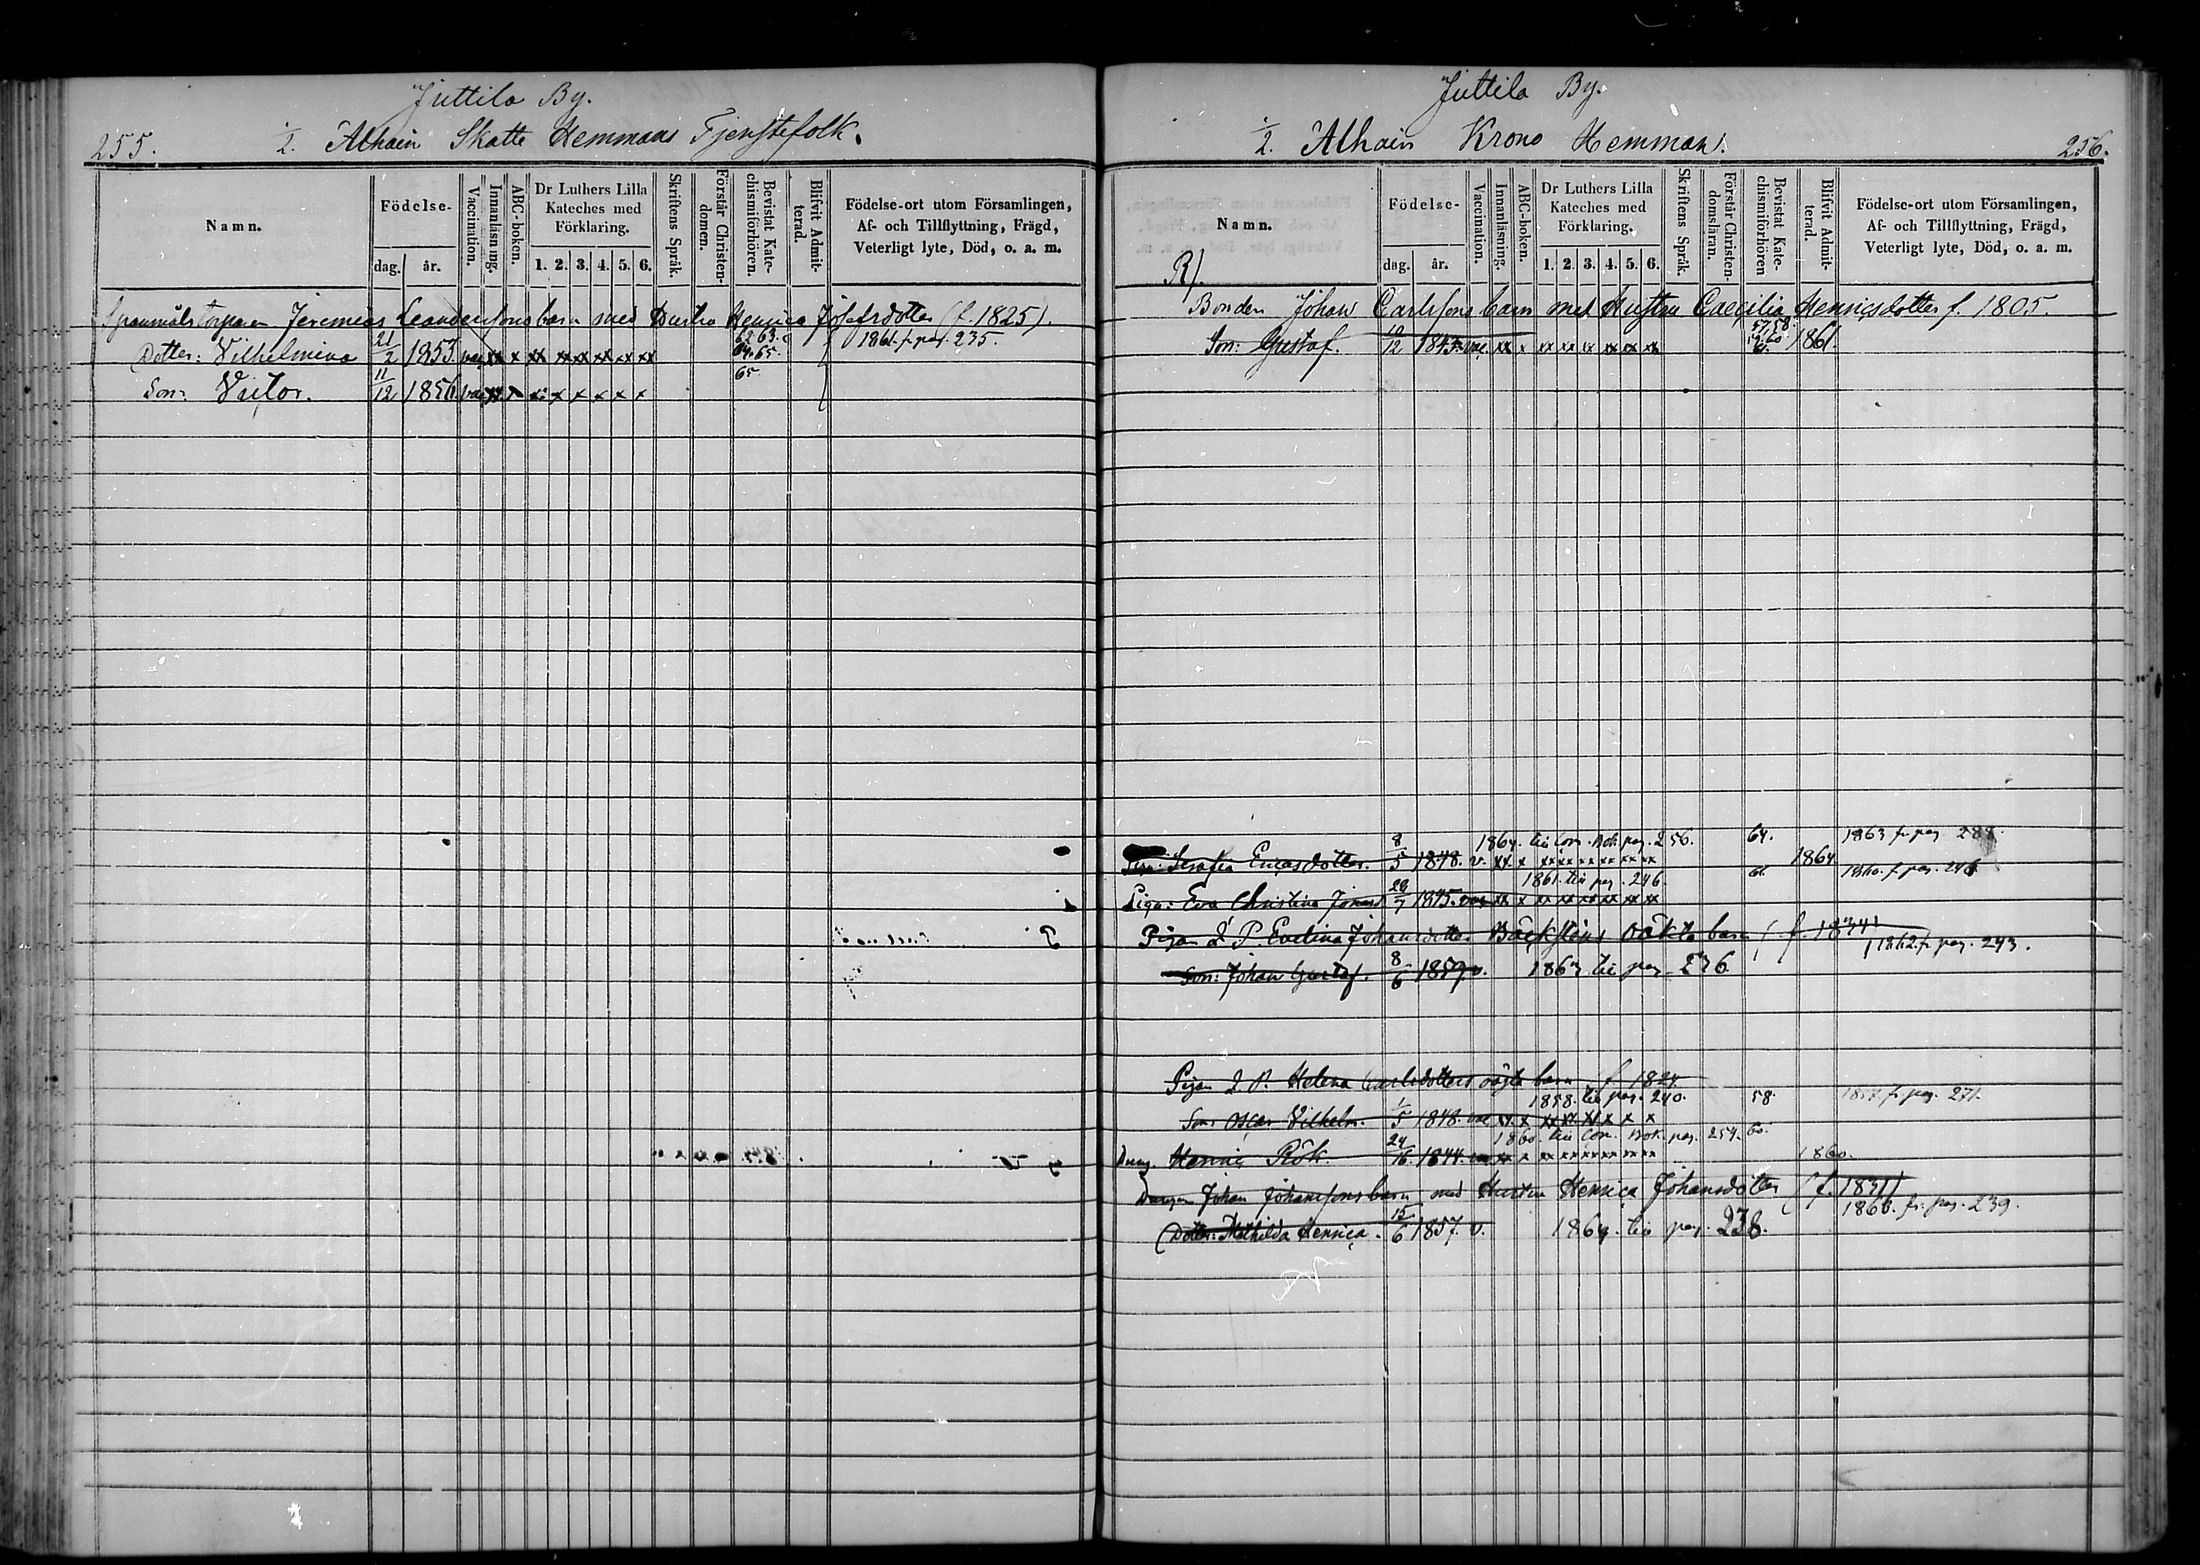 Juttila By.
255.
2. Alhain Skatte Hemmans Tjenstefolk.
Namn.
Födelse-
dag. år.
Vaccination.
Innanläsning.
ABC-boken.
Dr Luthers Lilla Kateches med Förklaring.
1. 2. 3. 4. 5. 6.
Skriftens Språk.
Förstår Christen-domen.
Bevistat Kate-chismiförhören.
Blifvit Admit-terad.
Födelse-ort utom Församlingen, Af- och Tillflyttning, Frägd, Veterligt lyte, Död, o. a. m.
Spanmåls Torparen Jeremias Leanderssons barn med Hustru Henrica Josefsdotter (f. 1825).
Dotter: Vilhelmina 21/2 1853. vac xx x xx xx xx xx xx xx 62 63. 64. 65. 1861. fr. pag. 235.
Son: Victor. 11/12 1856. vac x x x x x x 65
Juttila By.
2. Alhain Krono Hemman.
256.
Namn.
Födelse-
dag. år.
Vaccination.
Innanläsning.
ABC-boken.
Dr Luthers Lilla Kateches med Förklaring.
1. 2. 3. 4. 5. 6.
Skriftens Språk.
Förstår Christen-domsläran.
Bevistat Kate-chismiförhören
Blifvit Admit-terad.
Födelse-ort utom Församlingen, Af- och Tillflyttning, Frägd, Veterligt lyte, Död, o. a. m.
R/.
Bonden Johan Carlssons barn med Hustru Caecilia Henricsdotter f. 1805.
Son: Gustaf. 10/12 1845. vac. xx x xx xx xx xx xx xx 57. 58. 1861.
1864. till Com. Bok pag. 256. 64. 1863 fr. pag. 288.
Serafia Ericsdotter. 8/5 1848. v. xx x xx xx xx xx xx xx 1864
1861. till pag. 246. 1860. f. pag. 246
Piga: Eva Christina 29/7 1845. vac xx x xx xx xx xx xx xx
Pigan Evelina Johansdotter oäkta barn
1862. fr. pag. 243.
Son: Johan Gustaf. 8/6 1859. v. till pag. 276
Pigan Helena Carlsdotters oägta barn f. 1824
1858. till pag. 240. 58. 1857. fr. pag. 271.
Son: Oscar Vilhelm. 1/5 1848. vac xx x xx xx xx x x x
1860. till Com. Bok. pag. 254. 60.
Dreng. Henric Rök. 1844. xx x xx xx xx xx xx xx 1860.
Drengen Johan Johanssons barn med Hustru Henrica Johansdotter (f. 1831)
1860. fr. pag. 239.
(Dotter: Mathilda Henrica. 15/6 1857. v. till pag. 238.